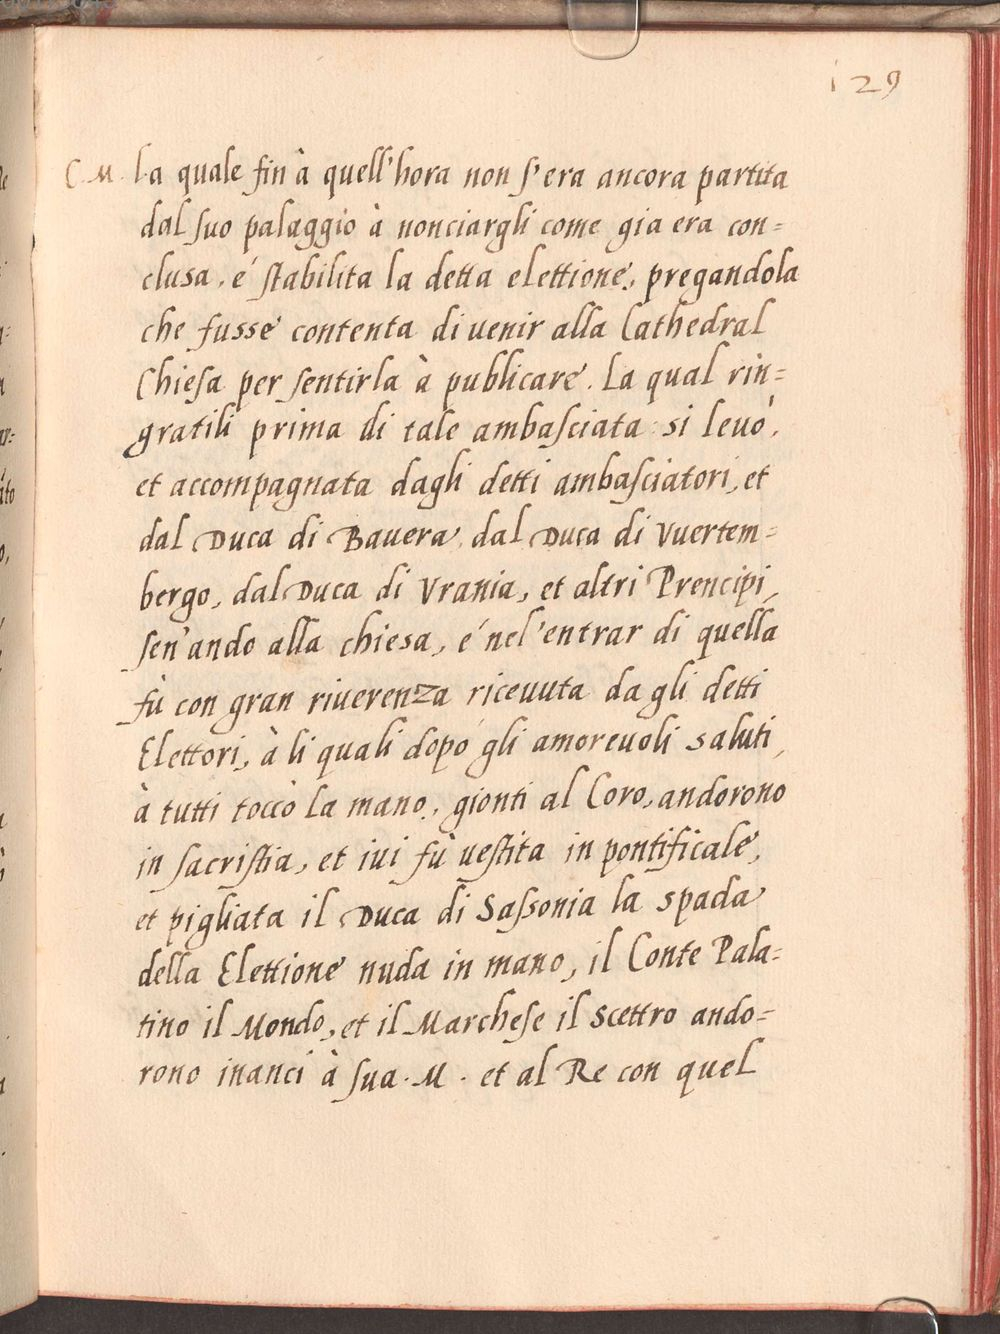 129
C. M. la quale fin à quell'hora non s'era ancora partita
dal suo palaggio à nonciargli come gia era con=
clusa, é stabilita la detta elettione, pregandola
che fusse contenta di uenir alla Cathedral
Chiesa per sentirla à publicare. La qual rin=
gratili prima di tale ambasciata si leuò,
et accompagnata dagli detti ambasciatori, et
dal Duca di Bauera, dal Duca di Vuertem=
bergo, dal Duca di Vrania, et altri Prencipi,
sen'ando alla chiesa, é nel'entrar di quella
fù con gran riuerenza riceuuta da gli detti
Elettori, à li quali dopó gli amoreuoli saluti,
à tutti toccò la mano, gionti al Coro, andorono
in sacristia, et iui fù uestita in pontificale,
et pigliata il Duca di Sassonia la spada
della Elettione nuda in mano, il Conte Pala=
tino il Mondo, et il Marchese il Scettro ando=
rono inanci à sua. M. et al Re con quel